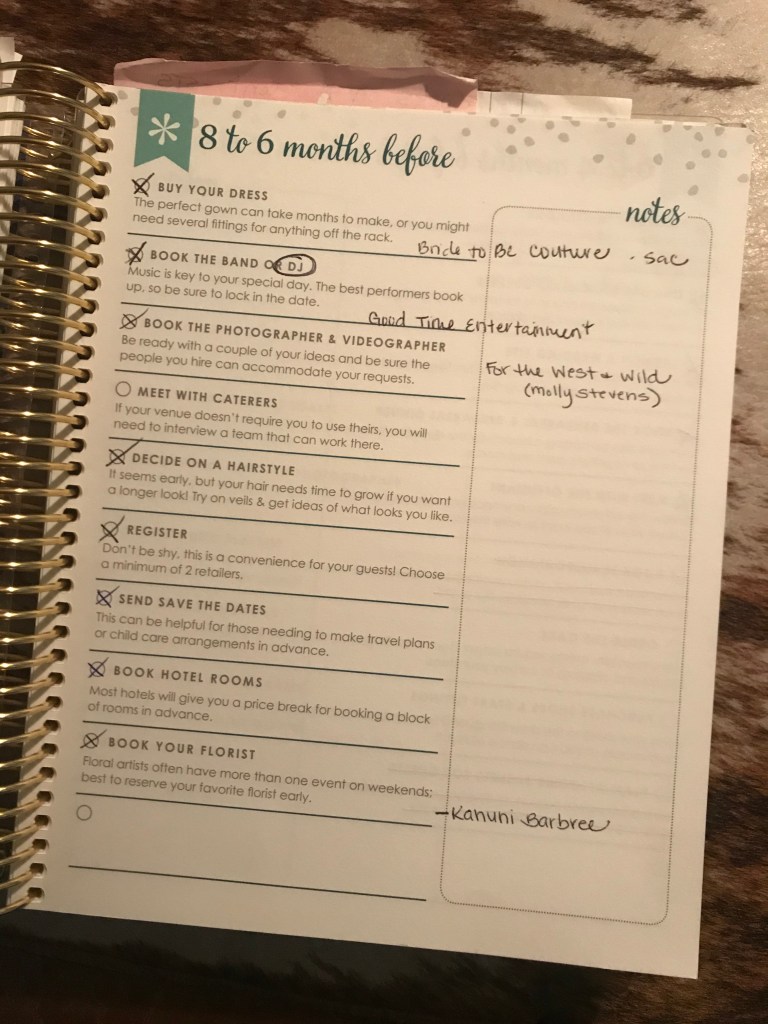 8 to 6 months before
notes
BUY YOUR DRESS
The perfect gown can take months to make, or you might
need several fittings for anything off the rack.
Bride to Be couture . sac
BOOK THE BAND OR DJ
Music is key to your special day. The best performers book
up, so be sure to lock in the date.
Good Time Entertainment
BOOK THE PHOTOGRAPHER & VIDEOGRAPHER
Be ready with a couple of your ideas and be sure the
people you hire can accommodate your requests.
For the West & Wild
(molly stevens)
MEET WITH CATERERS
If your venue doesn't require you to use theirs, you will
need to interview a team that can work there.
DECIDE ON A HAIRSTYLE
It seems early, but your hair needs time to grow if you want
a longer look! Try on veils & get ideas of what looks you like.
REGISTER
Don't be shy, this is a convenience for your guests! Choose
a minimum of 2 retailers.
SEND SAVE THE DATES
This can be helpful for those needing to make travel plans
or child care arrangements in advance.
BOOK HOTEL ROOMS
Most hotels will give you a price break for booking a block
of rooms in advance.
BOOK YOUR FLORIST
Floral artists often have more than one event on weekends;
best to reserve your favorite florist early.
- Kanuni Barbree